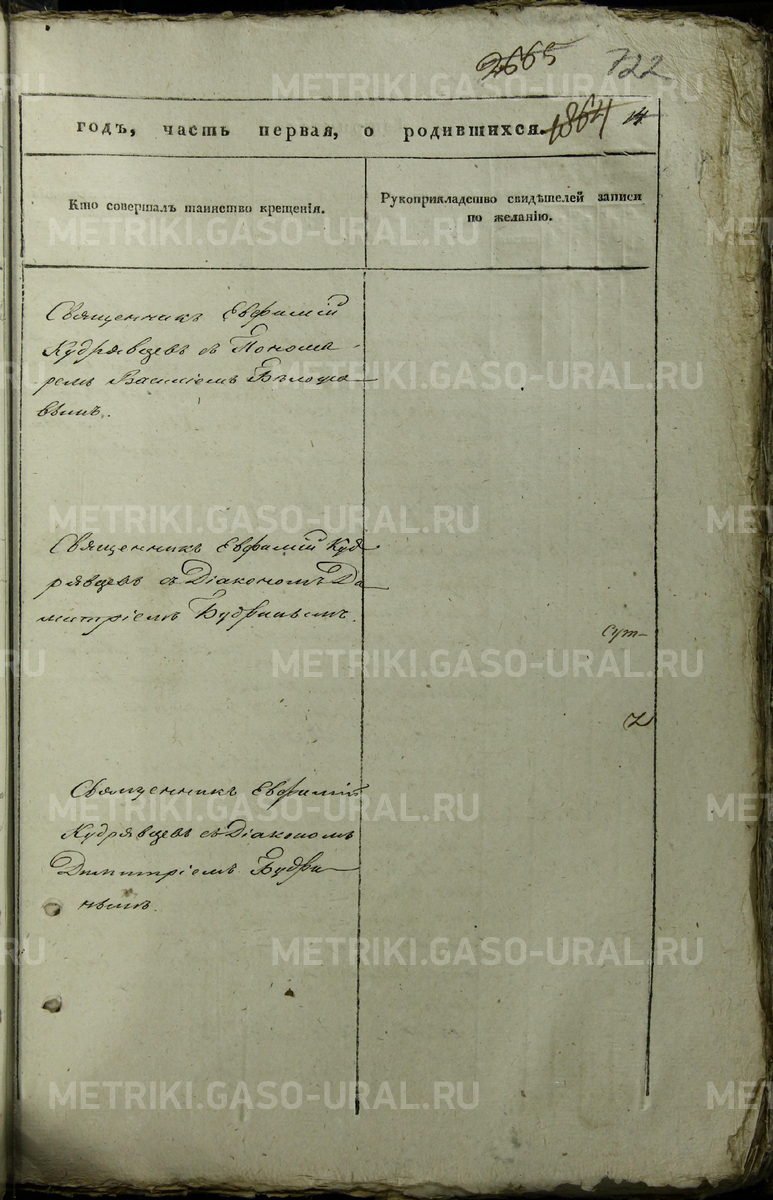 2665 722
годъ, часть первая, о родившихся. 1864 14
Кто совершалъ таинство крещенія.
Рукоприкладство свидѣтелей записи
по желанію.
Священникъ Евфимій
Кудрявцевъ съ Понома-
ремъ Василіемъ
вымъ.
Священникъ Евфимій Куд-
рявцевъ съ Діакономъ Ди-
митріемъ Будринымъ.
сут-
Священникъ Евфимій
Кудрявцевъ съ Діакономъ
Димитріемъ Будри-
нымъ.
METRIKI.GASO-URAL.RU